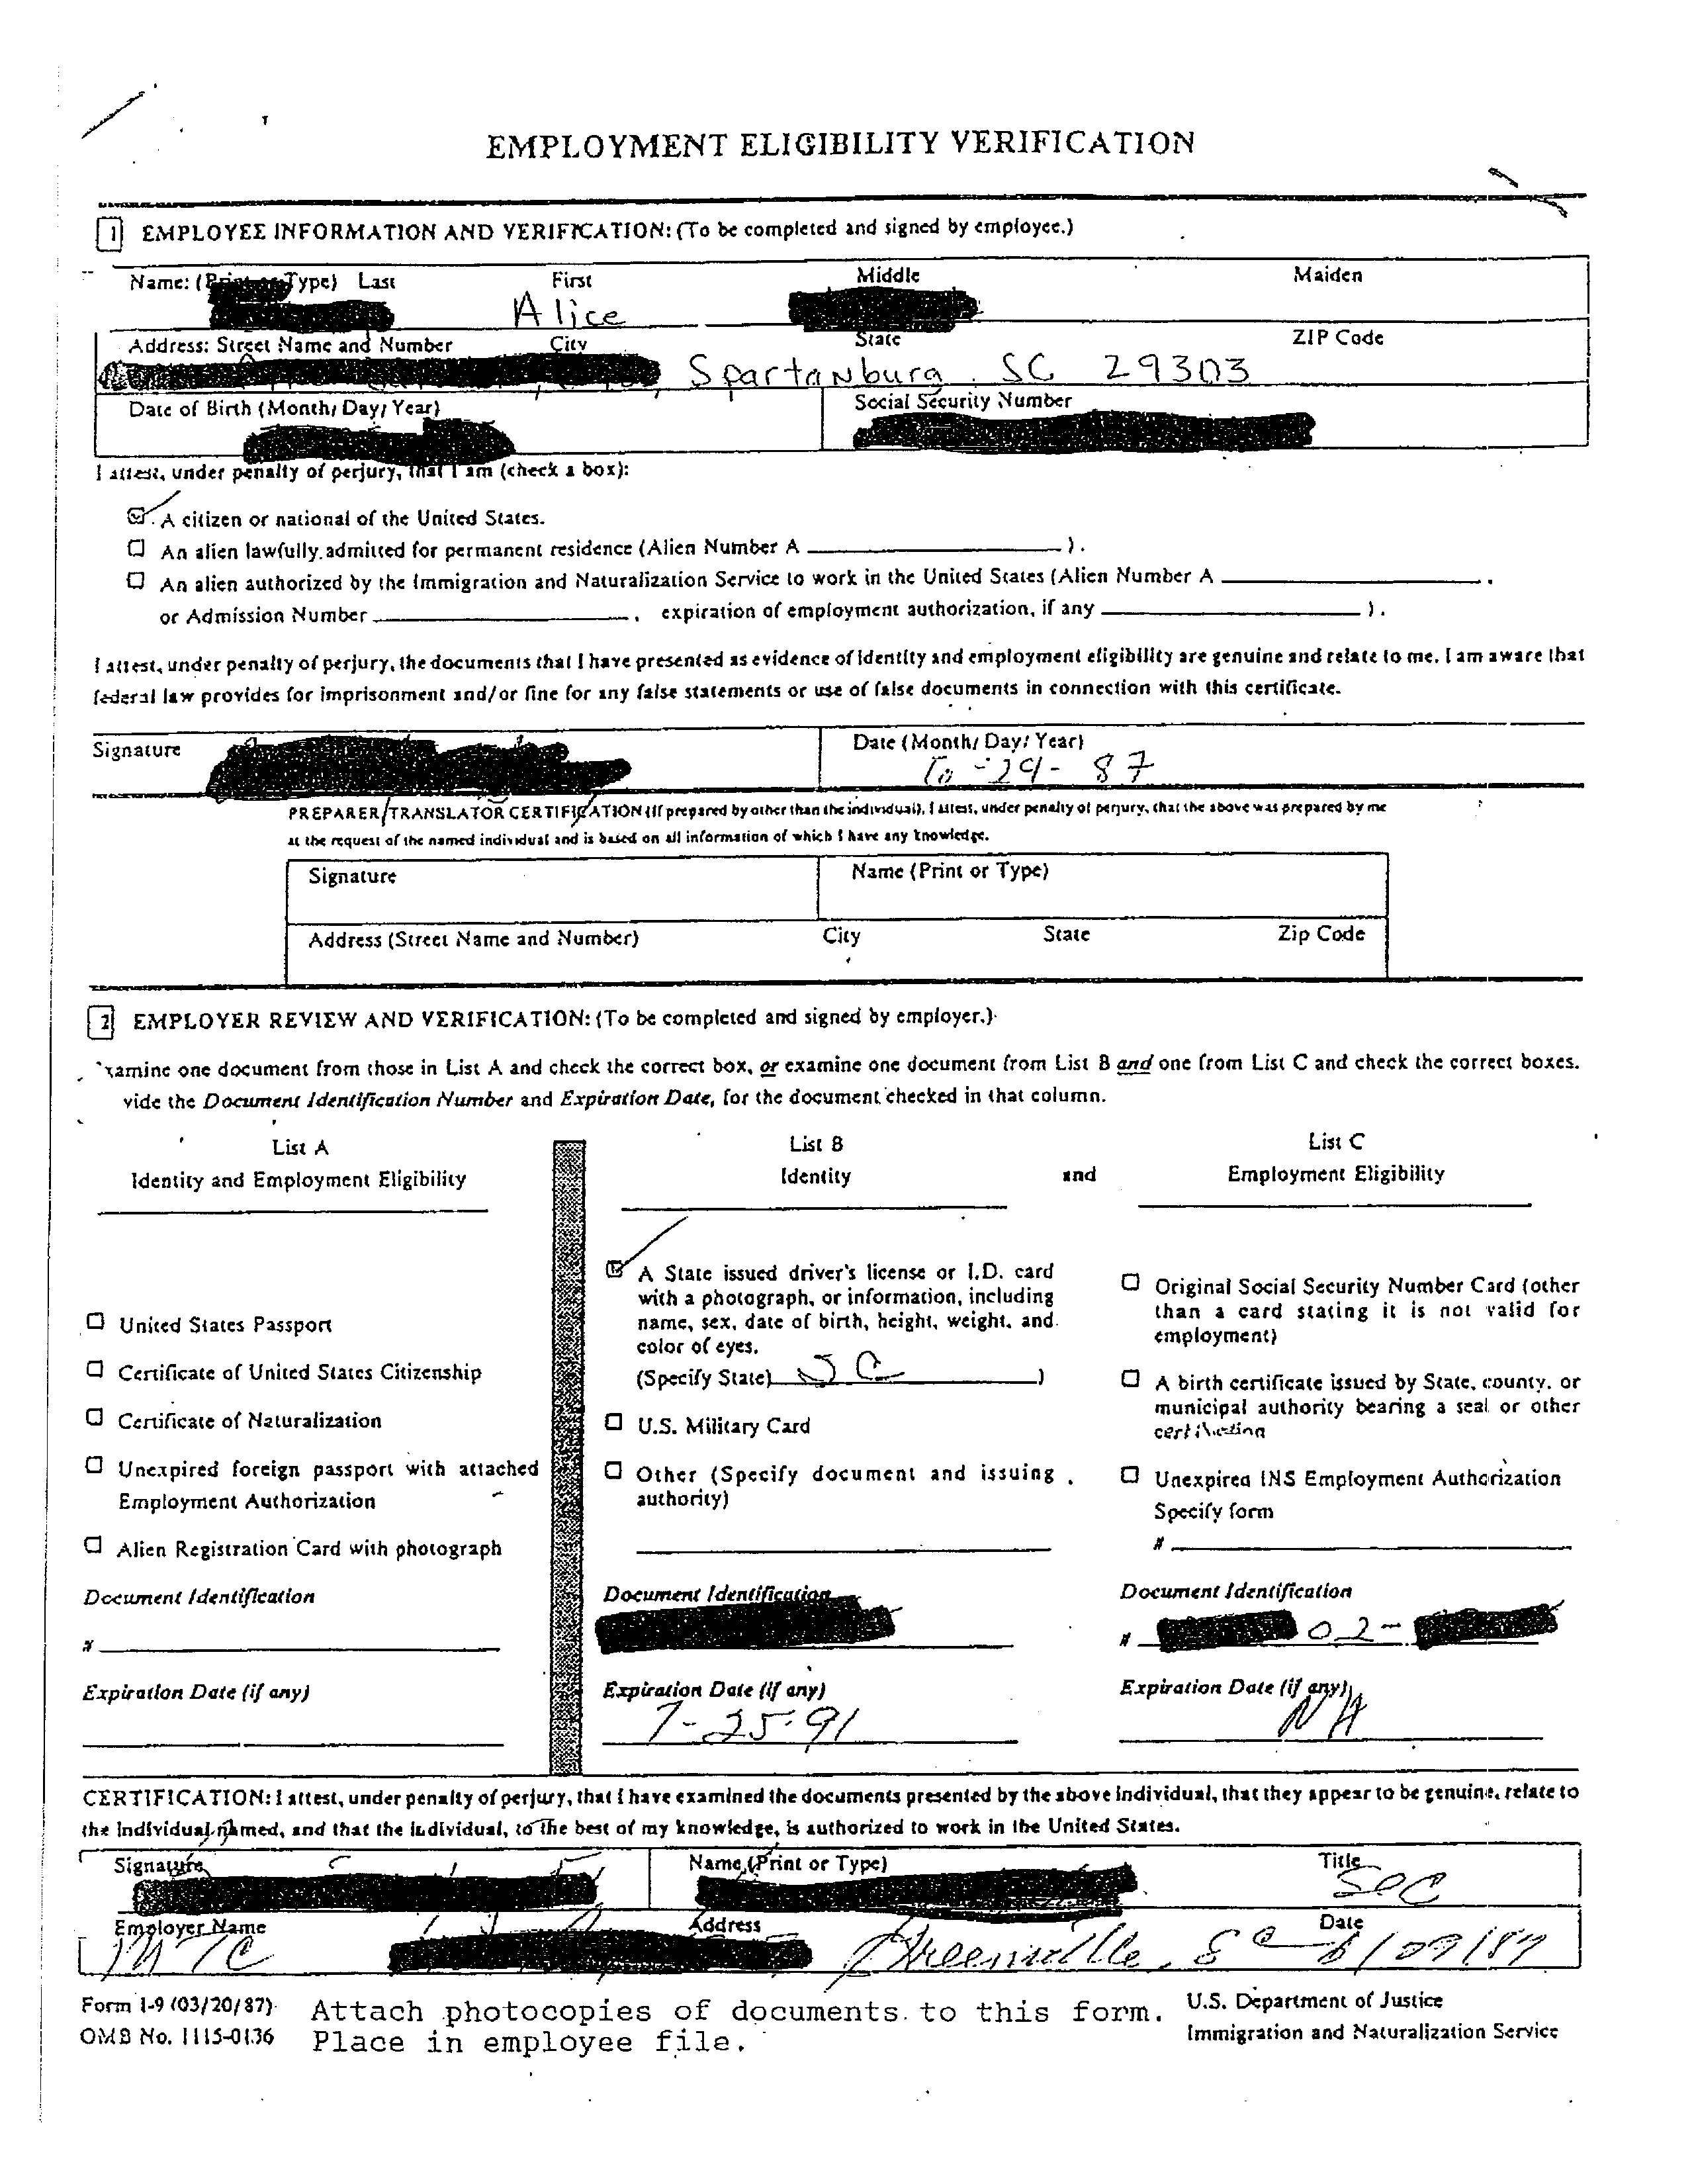 EMPLOYMENT ELIGIBILITY VERIFICATION
1 EMPLOYEE INFORMATION AND VERIFICATION: (To be completed and signed by employee.)
Name: (Print or Type) Last First Middle Maiden
Alice
Address: Street Name and Number City State ZIP Code
Spartanburg, SC 29303
Date of Birth (Month/Day/Year) Social Security Number
I attest, under penalty of perjury, that I am (check a box):
A citizen or national of the United States.
An alien lawfully admitted for permanent residence (Alien Number A ).
An alien authorized by the Immigration and Naturalization Service to work in the United States (Alien Number A ,
or Admission Number , expiration of employment authorization, if any ).
I attest, under penalty of perjury, the documents that I have presented as evidence of identity and employment eligibility are genuine and relate to me. I am aware that
federal law provides for imprisonment and/or fine for any false statements or use of false documents in connection with this certificate.
Signature Date (Month/Day/Year)
-29-87
PREPARER/TRANSLATOR CERTIFICATION (If prepared by other than the individual). I attest, under penalty of perjury, that the above was prepared by me
at the request of the named individual and is based on all information of which I have any knowledge.
Signature Name (Print or Type)
Address (Street Name and Number) City State Zip Code
2 EMPLOYER REVIEW AND VERIFICATION: (To be completed and signed by employer.)
xamine one document from those in List A and check the correct box, or examine one document from List B and one from List C and check the correct boxes.
vide the Document Identification Number and Expiration Date, for the document checked in that column.
List A List B List C
Identity and Employment Eligibility Identity and Employment Eligibility
United States Passport
Certificate of United States Citizenship
Certificate of Naturalization
Unexpired foreign passport with attached
Employment Authorization
Alien Registration Card with photograph
Document Identification
#
Expiration Date (if any)
A State issued driver's license or I.D. card
with a photograph, or information, including
name, sex, date of birth, height, weight, and
color of eyes.
(Specify State) SC )
U.S. Military Card
Other (Specify document and issuing
authority)
Document Identification
Expiration Date (if any)
7-25-91
Original Social Security Number Card (other
than a card stating it is not valid for
employment)
A birth certificate issued by State, county, or
municipal authority bearing a seal or other
certification
Unexpired INS Employment Authorization
Specify form
#
Document Identification
# 02-
Expiration Date (if any)
NA
CERTIFICATION: I attest, under penalty of perjury, that I have examined the documents presented by the above individual, that they appear to be genuine, relate to
the individual named, and that the individual, to the best of my knowledge, is authorized to work in the United States.
Signature Name (Print or Type) Title
Sec
Employer Name Address Date
MTC Greenville, SC 6/29/87
Form I-9 (03/20/87)
OMB No. 1115-0136
Attach photocopies of documents to this form.
Place in employee file.
U.S. Department of Justice
Immigration and Naturalization Service